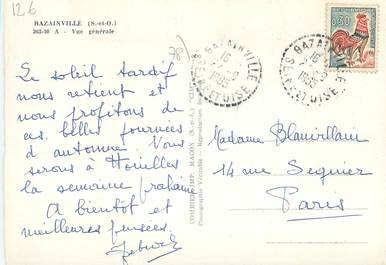 126
BAZAINVILLE (S.-et-O.)
363-10 A - Vue générale
BAZAINVILLE
16
SEINE-ET-OISE
0,30
Le soleil tardif
nous retient et
nous profitons de
ces belles journées
d'automne. Vous
serons à Houilles
la semaine prochaine
A bientôt et
meilleures pensées.
COMBIER IMP. MACON (S.-et-L.) "CIM"
Photographie Véritable - Reproduction
Madame
14 rue Seguier
Paris